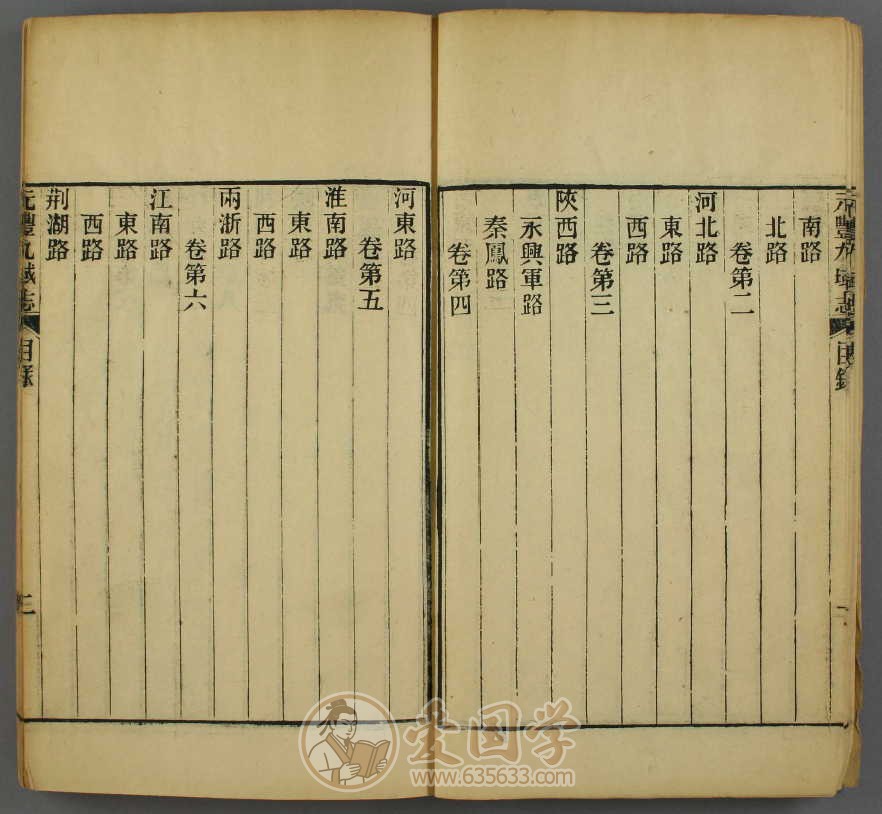 元豐九域志 目錄
南路
北路
卷第二
河北路
東路
西路
卷第三
陝西路
永興軍路
秦鳳路
卷第四
河東路
卷第五
淮南路
東路
西路
兩浙路
卷第六
江南路
東路
西路
荆湖路
元豐九域志 目錄 三
爱国学
www.635633.com